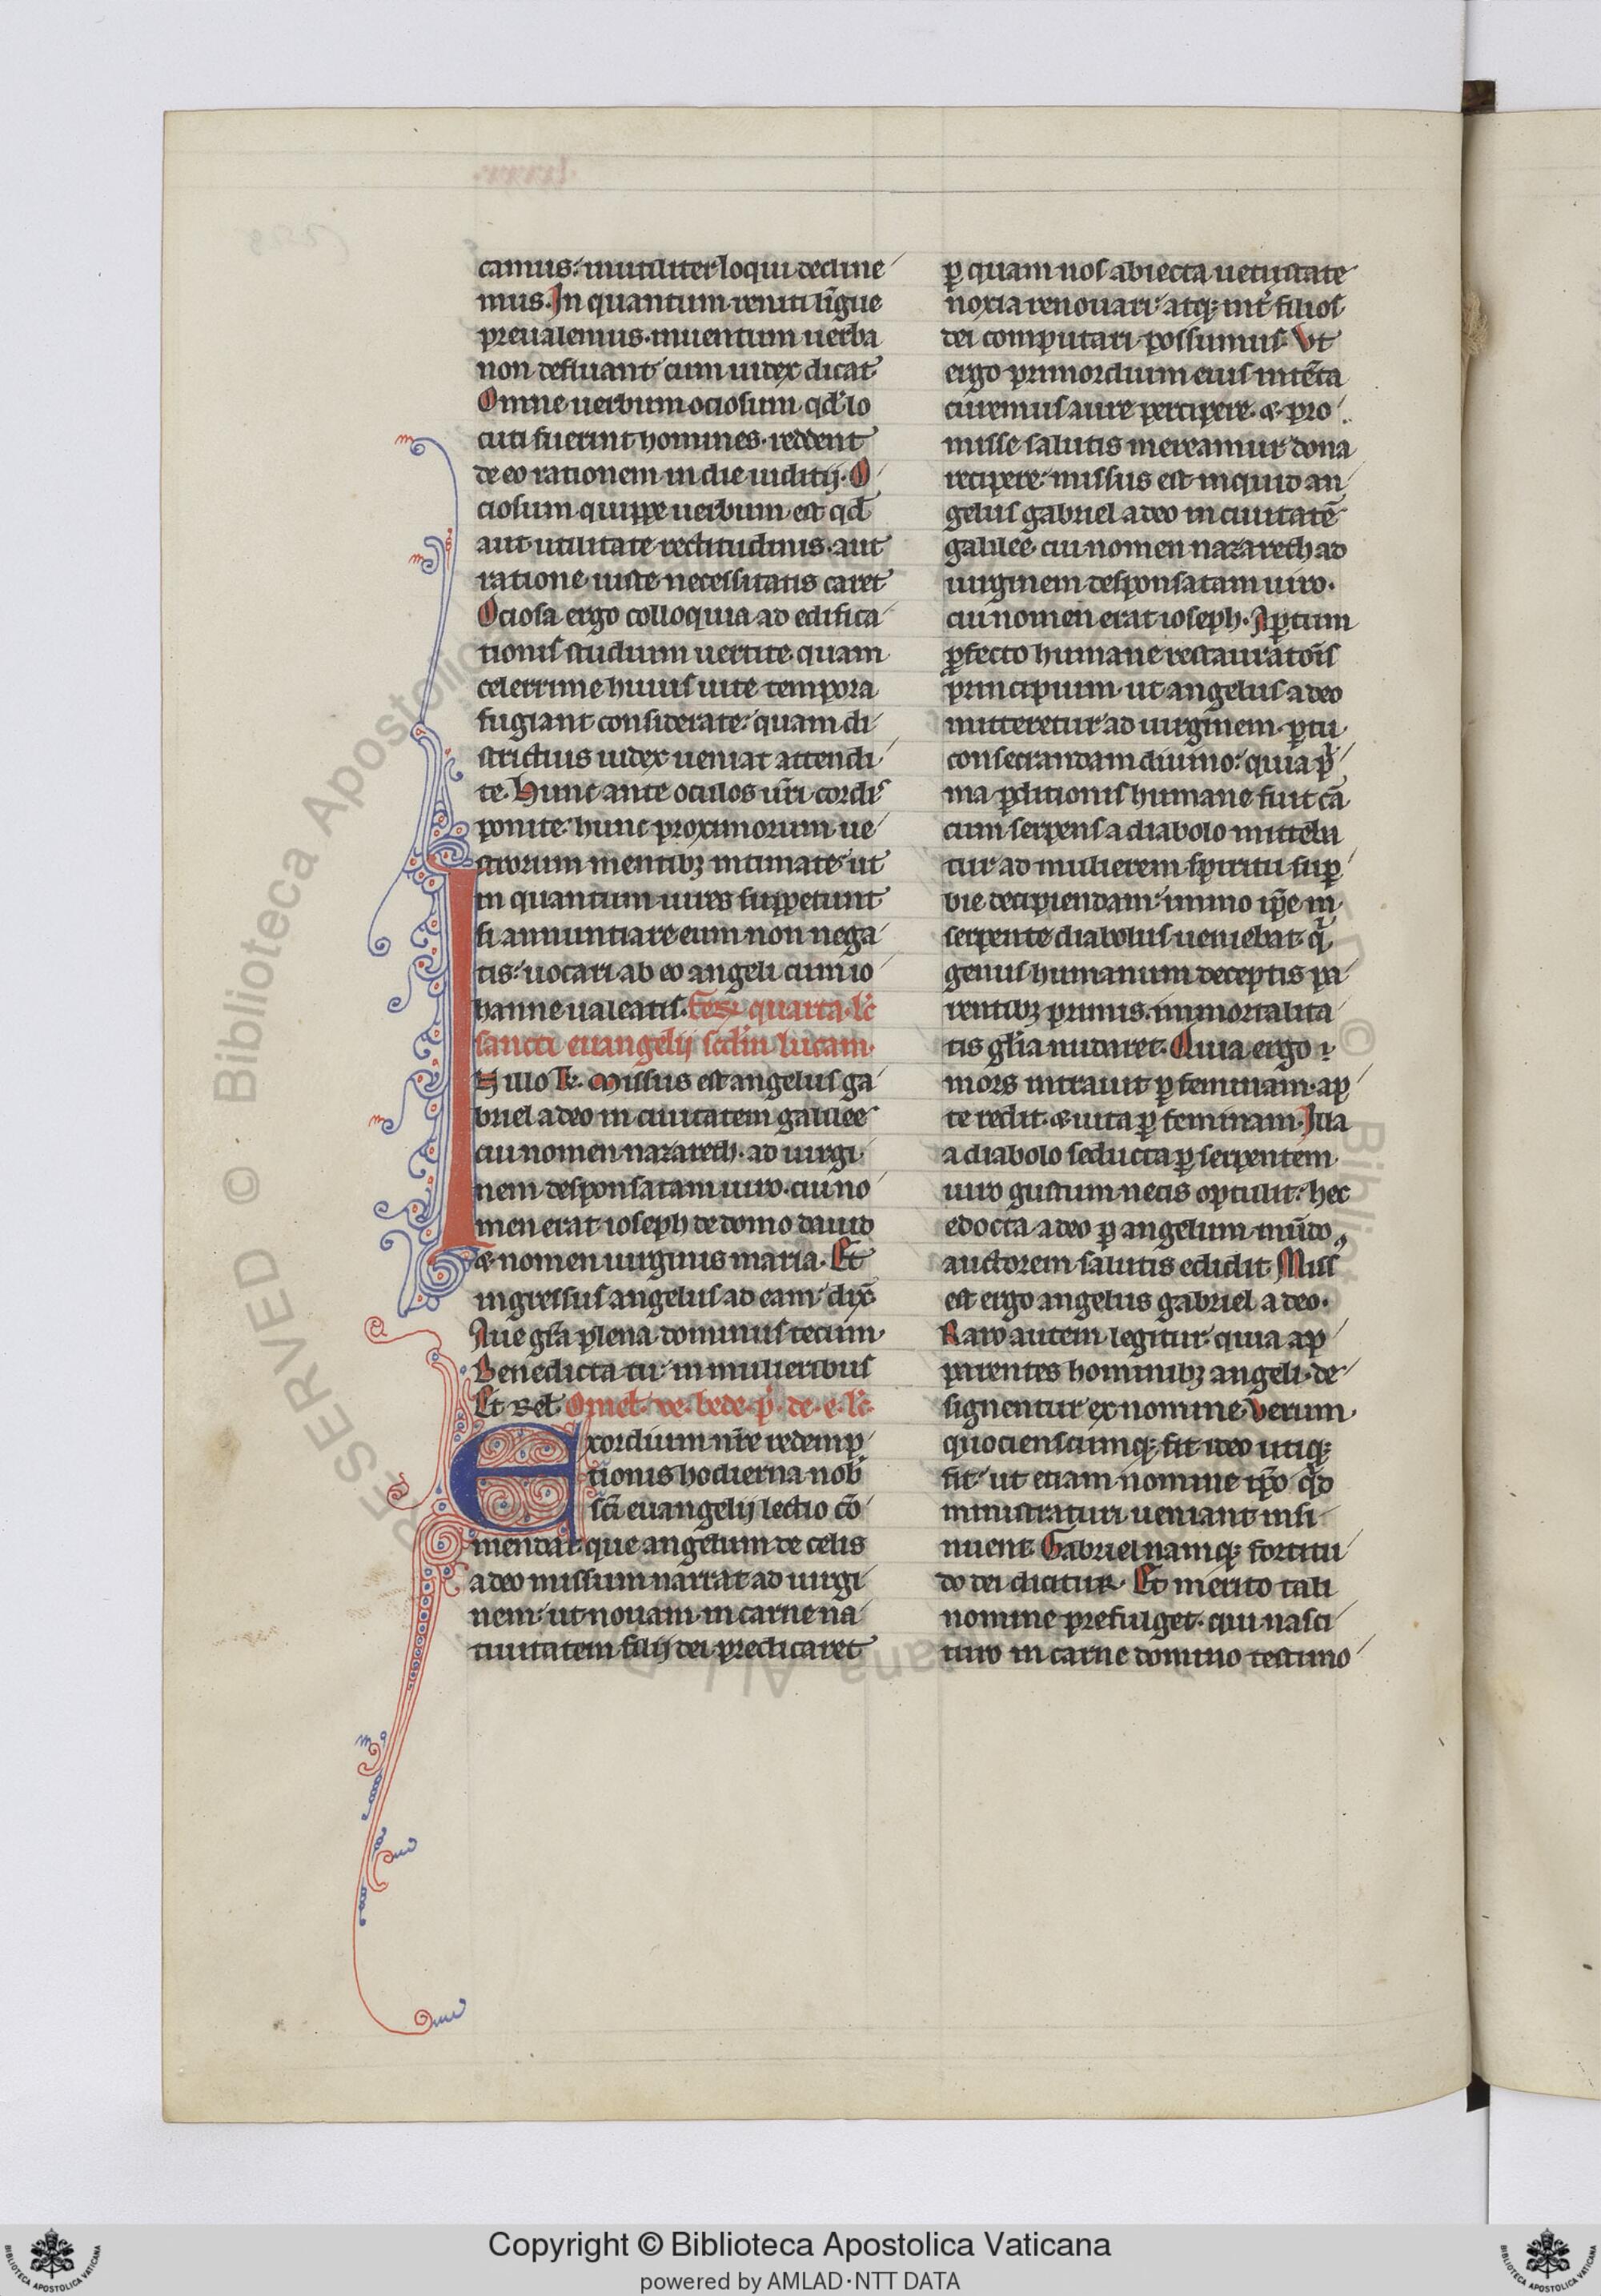 camus. inutiliter loqui decline
mus. In quantum reniti ligue
preualemus. in uentum uerba
non defluant cum iudex dicat
Omne uerbum ociosum qd lo
cuti fuerint homines. reddent
de eo rationem in die iudicij. O
ciosum quippe uerbum est qd
aut utilitate rectitudinis. aut
ratione iuste necessitatis caret
Ociosa ergo colloquia ad edifica
tionis studium uertite. quam
celerrime huius uite tempora
fugiant considerate. quam di
strictius iudex ueniat attendi
te. Hunc ante oculos uri cordis
ponite. hunc proximorum ue
strorum mentibꝫ intimate. ut
in quantum uires suppetunt
si annuntiare eum non nega
tis. uocari ab eo angeli cum io
hanne ualeatis. quarta. lc
sancti euangelij scdm lucam.
In illo t̄. Missus est angelus ga
briel a deo in ciuitatem galilee
cui nomen nazareth. ad uirgi
nem desponsatam uiro. cui no
men erat ioseph de domo dauid
& nomen uirginis maria. Et
ingressus angelus ad eam dix̄.
Aue gr̄a plena dominus tecum
Benedicta tu in mulieribus
Et rel. Omel. ve. bede. p̄. de. e. lc.
Exordium nr̄e redemp
tionis hodierna nob
sc̄i euangelij lectio cō
mendat que angelum de celis
a deo missum narrat ad uirgi
nem. ut nouam in carne na
tiuitatem filij dei predicaret
ꝑ quam nos abiecta uetustate
noxia renouari. atqꝫ int̄ filios
dei computari possumus. Vt
ergo primordium eius intēta
curemus aure percipere. & pro
misse salutis mereamur dona
recipere. missus est inquid an
gelus gabriel a deo in ciuitatē
galilee. cui nomen nazareth ad
uirginem desponsatam uiro.
cui nomen erat ioseph. Aptum
ꝓfecto humane restauratōis
principium. ut angelus a deo
mitteretur ad uirginem. ꝑtu
consecrandam diuino. quia pͥ
ma ꝑditionis humane fuit cā
cum serpens a diabolo mitteba
tur ad mulierem spiritu suꝑ
bie decipiendam. immo ip̄e in
serpente diabolus ueniebat. qͥ
genus humanum deceptis pa
rentibꝫ primis. immortalita
tis gl̄ia nudaret. Quia ergo
mors intrauit ꝑ feminam. ap
te redit. & uita ꝑ feminam. Illa
a diabolo seducta ꝑ serpentem
uiro gustum necis optulit. hec
edocta a deo ꝑ angelum. mūdo
auctorem salutis edidit. Miss
est ergo angelus gabriel a deo.
Raro autem legitur. quia ap
parentes hominibꝫ angeli. de
signentur ex nomine. Verum
quociensc̄umqꝫ fit ideo utiqꝫ
fit. ut etiam nomine ip̄o qͥd
ministraturi ueniant insi
nuent. Gabriel namqꝫ fortitu
do dei dicitur. Et merito tali
nomine prefulget. qui nasci
turo in carne domino testimo
Copyright © Biblioteca Apostolica Vaticana
powered by AMLAD·NTT DATA